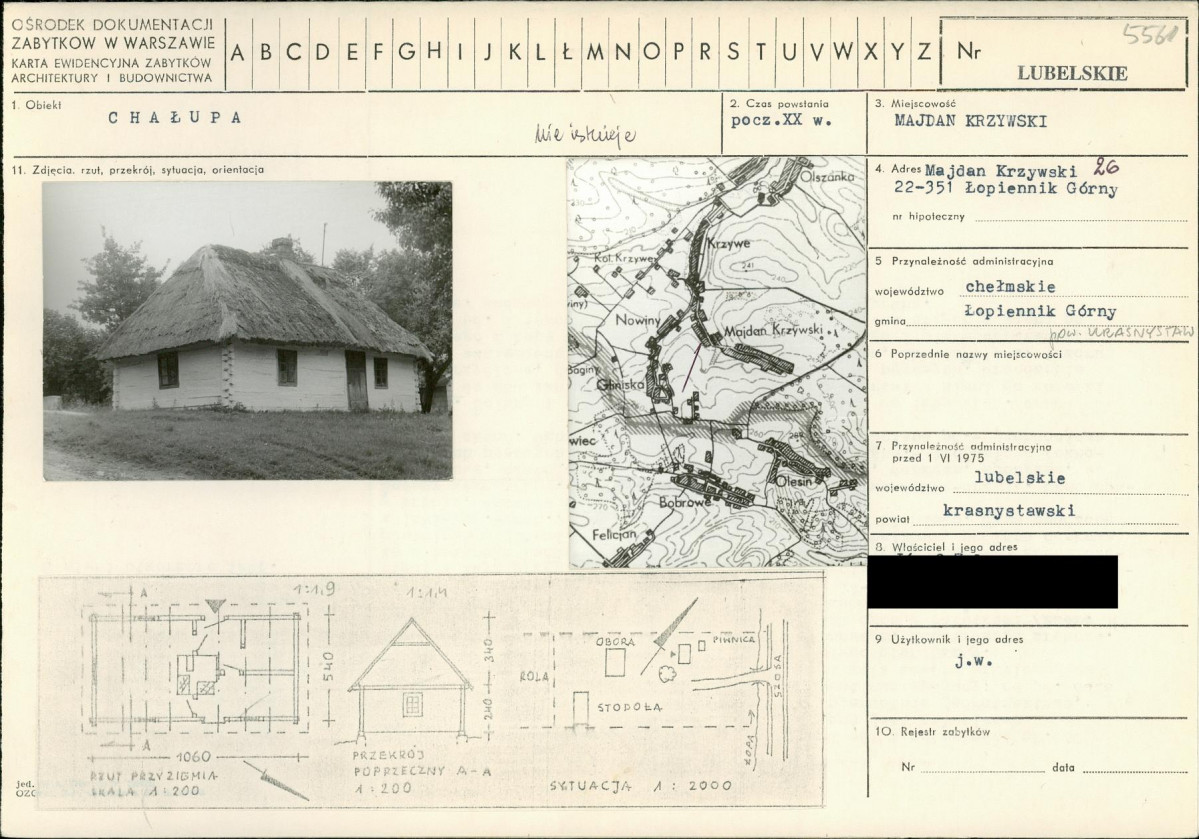 OŚRODEK DOKUMENTACJI
ZABYTKÓW W WARSZAWIE
KARTA EWIDENCYJNA ZABYTKÓW
ARCHITEKTURY I BUDOWNICTWA
A B C D E F G H I J K L Ł M N O P R S T U V W X Y Z
Nr
5561
LUBELSKIE
1. Obiekt
CHAŁUPA
Nie istnieje
2. Czas powstania
pocz.XX w.
3. Miejscowość
MAJDAN KRZYWSKI
11. Zdjęcia. rzut, przekrój, sytuacja, orientacja
4. Adres Majdan Krzywski 26
22-351 Łopiennik Górny
nr hipoteczny
5 Przynależność administracyjna
województwo chełmskie
gmina Łopiennik Górny
pow. KRASNYSTAW
6 Poprzednie nazwy miejscowości
7 Przynależność administracyjna
przed 1 VI 1975
województwo lubelskie
powiat krasnystawski
8. Właściciel i jego adres
9 Użytkownik i jego adres
j.w.
10. Rejestr zabytków
Nr data
Olszanka
Krzywe
Kol. Krzywe
241
240
Nowiny
Majdan Krzywski
Gliniska
wiec
Olesin
Bobrowe
270
Felicjan
1:1,9
A
540
A
1060
RZUT PRZYZIEMIA
SKALA 1:200
1:1,4
340
240
PRZEKRÓJ
POPRZECZNY A-A
1:200
OBORA
PIWNICA
ROLA
STODOŁA
SZOSA
SYTUACJA 1:2000
jed.